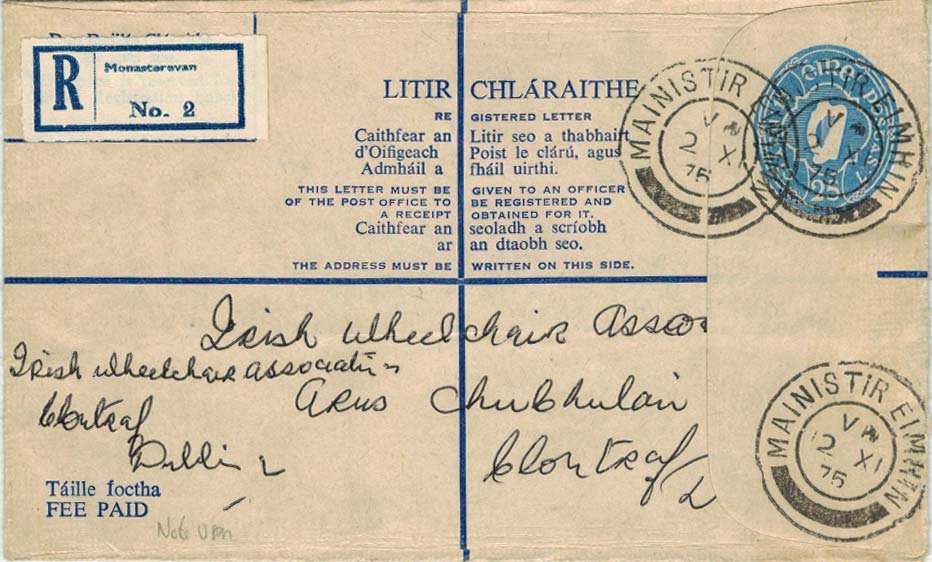 R
Monasterevan
No. 2
LITIR CHLÁRAITHE
REGISTERED LETTER
Caithfear an Litir seo a thabhairt
d'Oifigeach Poist le clárú, agus
Admháil a fháil uirthi.
THIS LETTER MUST BE GIVEN TO AN OFFICER
OF THE POST OFFICE TO BE REGISTERED AND
A RECEIPT OBTAINED FOR IT.
Caithfear an seoladh a scríobh
ar an dtaobh seo.
THE ADDRESS MUST BE WRITTEN ON THIS SIDE.
MAINISTIR
2 XI
75
EIMHIN
75
Irish Wheelchair Assoc
Arus Chuchulain
Clontraf
Irish Wheelchair Association
Clontraf
Dublin
Táille íoctha
FEE PAID
Note VPM
MAINISTIR EIMHIN
2 XI
75